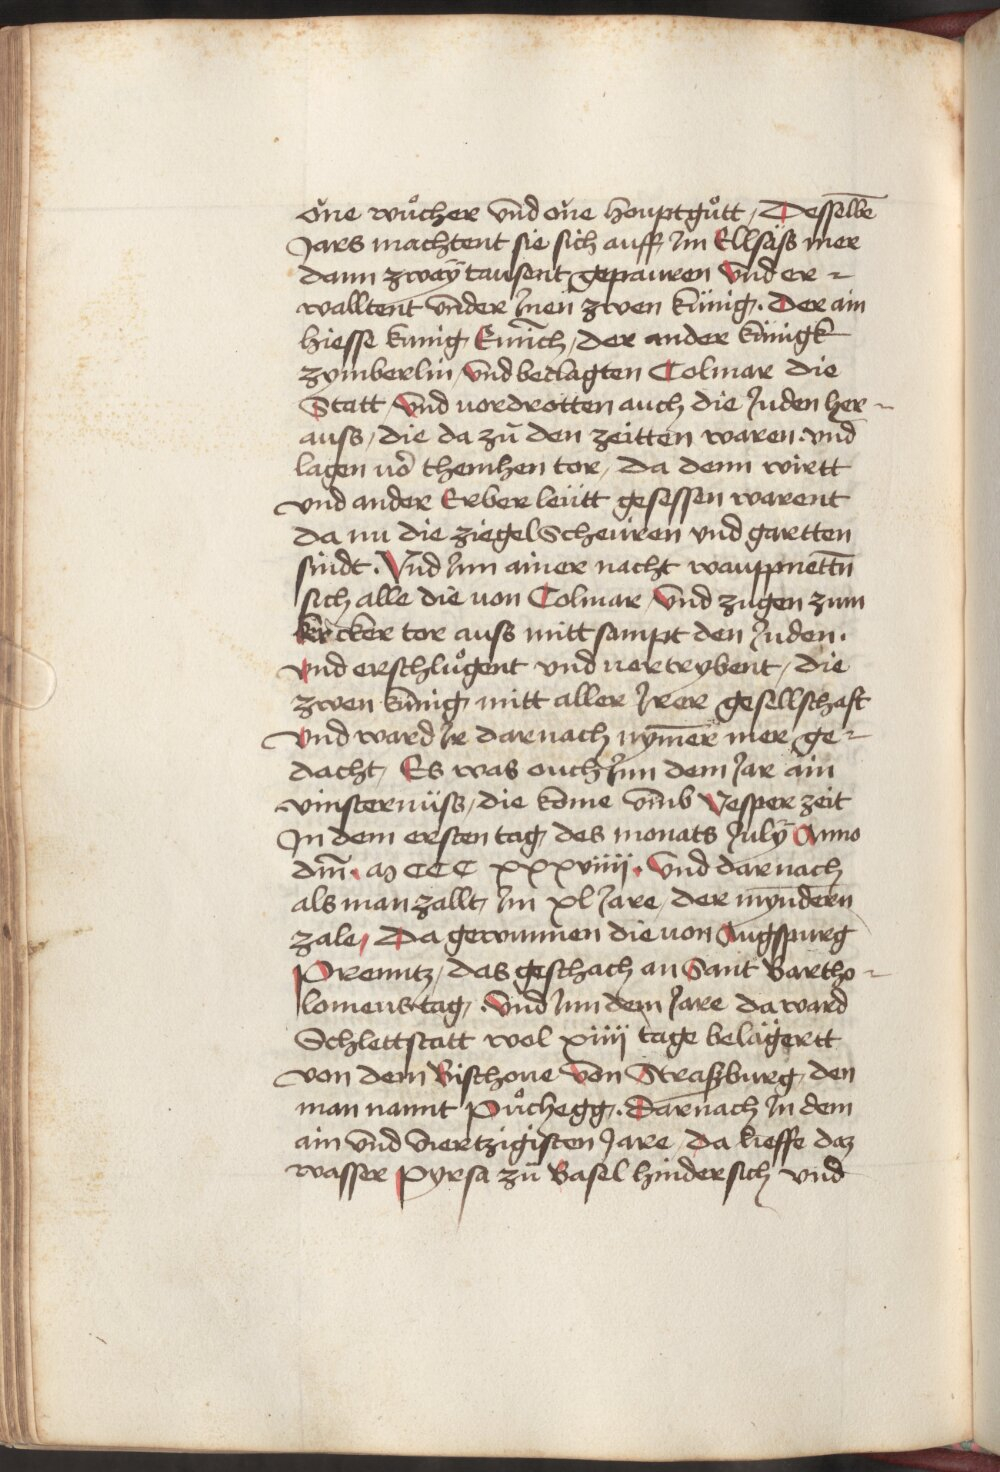 oͮne wuͦcher vnd oͮne houptguͦtt / Desselbē
Jars machtent sie sich auff / Jm Ellsäss mer
dann zwaÿ tausent gepauren Vnd er =
walltent vnder Jnen zwen künig . Der ain
hiesse kunig Emich / der ander künigk
zymberlin / Vnd beclagten Colmar die
Statt / Vnd uordrotten auch die Juden her =
auss / die da zu den zeitten waren . vnd
lagen uor themhen tor / da denn wirtt
vnd ander Erber leütt gesessen warent
da nu die ziegel Scheüren vnd gartten
sindt . Vnd Jnn ainer nacht wauppnettn̄
sich alle die uon Colmar / Vnd zugen zum
kercker tor auss mitt sampt den Juden .
vnd erschluͦgent vnd uertrybent / die
zwen künig mitt aller Jrer gesellschaft
Vnd ward Jr darnach nym̄er mer ge =
dacht / Es was ouch Jnn dem Jar ain
vinsternüss / die kome vmb Vesper zeit
Jn dem ersten tag des monats Julÿ Anno
dm̄ . M CCC xxxviiii . Vnd darnach
als man zallt / Jm xl Jare / der mÿndern
zale / Da gewunnen die uon Augspurg
Premitz / das geschach an Sant Bartho =
lomeus tag . Vnd Jnn dem Jare da ward
Schlettstatt wol xiiii tage belägertt
von dem Bischoue Von Straßburg / den
man nannt Puͦchegg . Darnach Jn dem
ain vnd viertzigisten Jare / Da lieffe daz
wasser Pyrsa zu Basel hindersich vnd